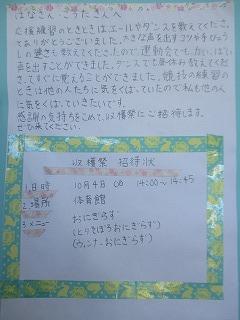 はなさん・こうたさんへ
応援練習のときときは、エールやダンスを教えてくださ
ってありがとうございました。大きな声を出すコツや手ひょう
しの速さも教えてくださったので運動会でも、かいっぱい
声を出すことができました。ダンスでも昼休み教えてくださ
って、すぐに覚えることができました。競技の練習の
ときは他の人たちに気をくばっていたので私も他の人
に気をくばっていきたいです。
感謝の気持ちをこめて、収穫祭にご招待します。
ぜひ来てください。
収穫祭 招待状
1.日時 10月4日 14:00～14:45
2.場所 体育館
3.メニュー おにぎらず
(とりそぼろおにぎらず)
(ウィンナーおにぎらず)